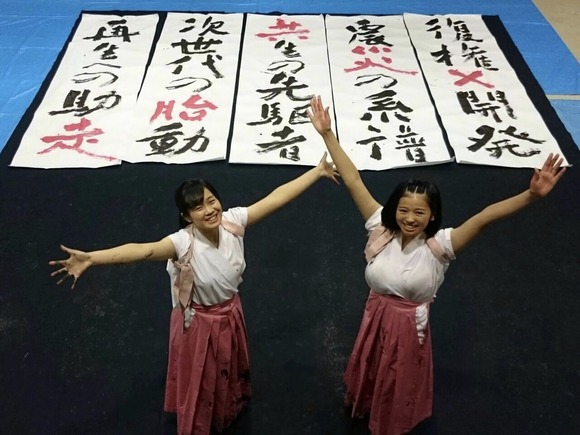 復権×開発
震災への系譜
共生の先駆者
次世代の胎動
再生への助走